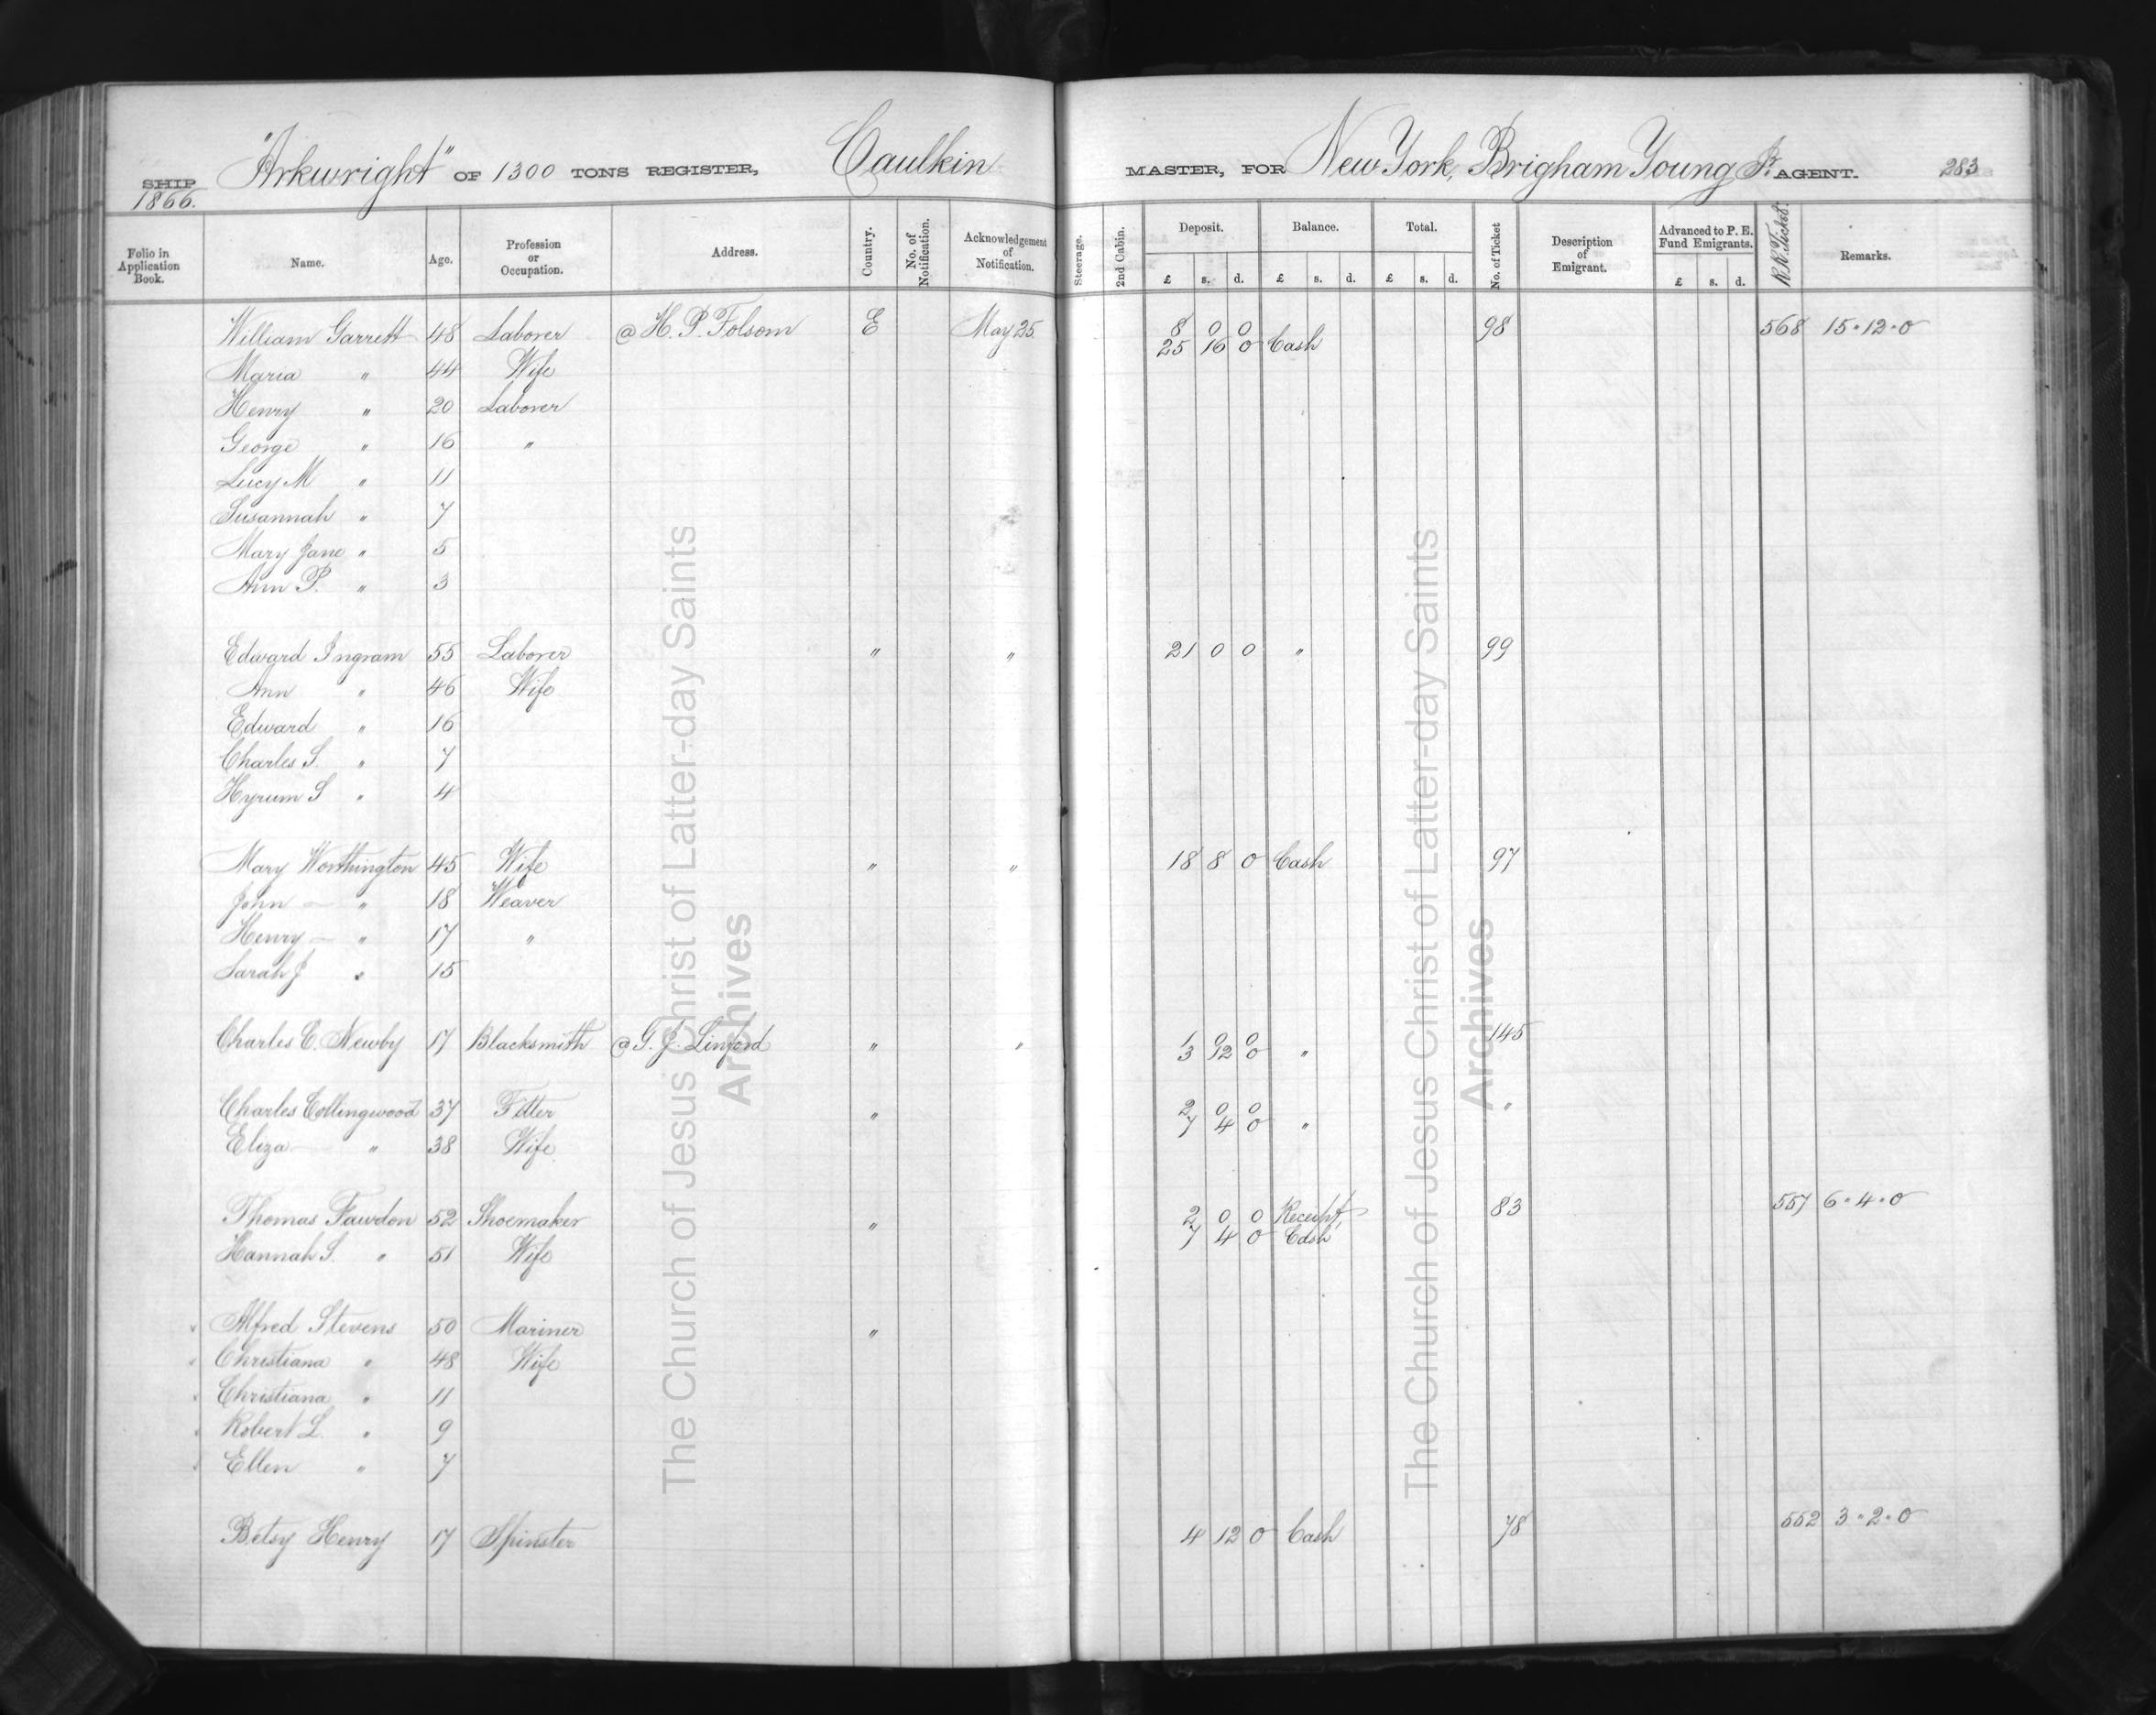 SHIP "Arkwright" OF 1300 TONS REGISTER, Caulkin MASTER, FOR New York, Brigham Young Jr. AGENT. 283
1866.
Folio in Application Book. Name. Age. Profession or Occupation. Address. Country. No. of Notification. Acknowledgement of Notification. Steerage. 2nd Cabin. Deposit. Balance. Total. No. of Ticket Description of Emigrant. Advanced to P. E. Fund Emigrants. R.R. Tickets. Remarks.
£ s. d. £ s. d. £ s. d. £ s. d.
William Garrett 48 Laborer @ H. P. Folsom E May 25. 8 0 0 98 568 15"12"0
25 16 0 Cash
Maria " 44 Wife
Henry " 20 Laborer
George " 16 "
Lucy M " 11
Susannah " 7
Mary Jane " 5
Ann P. " 3
Edward Ingram 55 Laborer " " 21 0 0 " 99
Ann " 46 Wife
Edward " 16
Charles S. " 7
Hyrum S " 4
Mary Worthington 45 Wife " " 18 8 0 Cash 97
John — " 18 Weaver
Henry — " 17 "
Sarah J " 15
Charles C. Newby 17 Blacksmith @ G. J. Linford " " 1 0 0 145
3 12 0 "
Charles Collingwood 37 Fitter " 2 0 0 "
7 4 0 "
Eliza " 38 Wife
Thomas Fawdon 52 Shoemaker " 2 0 0 Receipt, 83 557 6"4"0
7 4 0 Cash
Hannah S. " 51 Wife
Alfred Stevens 50 Mariner "
Christiana " 48 Wife
Christiana " 11
Robert L. " 9
Ellen " 7
Betsy Henry 17 Spinster 4 12 0 Cash 78 552 3"2"0
The Church of Jesus Christ of Latter-day Saints
Archives
The Church of Jesus Christ of Latter-day Saints
Archives